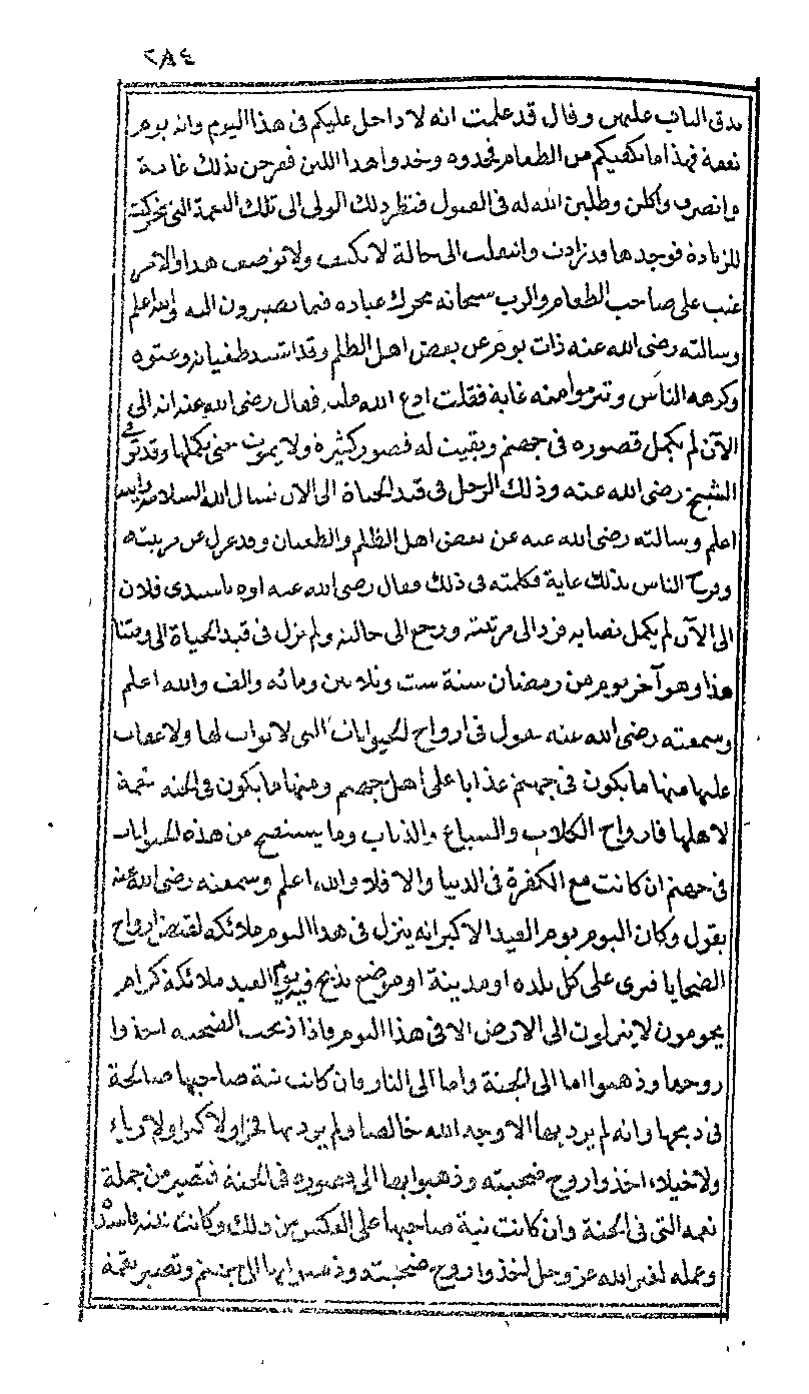 ٢٨٤
يدق الباب عليهن وقال قد علمت انه لا داخل عليكم فى هذا اليوم وانه يوم
نعمة فهذا ما يكفيكم من الطعام فخذوه وخذوا هذا اللبن ففرحن بذلك غاية
وانصرف واكلن وطلبن الله له فى القبول فنظر ذلك الولى الى تلك النعمة التى تحركت
للزيادة فوجدها قد زادت وانتقلت الى حالة لا تكيف ولا توصف هذا والاثر
غيب على صاحب الطعام والرب سبحانه يحرك عباده فيما يصيرون اليه والله اعلم
وسالته رضى الله عنه ذات يوم عن بعض اهل الظلم وقد اشتد طغيانه وعتوه
وكرهه الناس وتبرموا منه غاية فقلت ادع الله عليه فقال رضى الله عنه انه الى
الآن لم يكمل قصوره فى جهنم وبقيت له قصور كثيرة ولا يموت حتى يكملها وقد توفى
الشيخ رضى الله عنه وذلك الرجل فى قيد الحياة الى الآن نسال الله السلامة والله
اعلم وسالته رضى الله عنه عن بعض اهل الظلم والطغيان وقد عزل عن مرتبته
وفرح الناس بذلك غاية فكلمته فى ذلك فقال رضى الله عنه اوه يا سيدى فلان
الى الآن لم يكمل نصابه فرد الى مرتبته ورجع الى حالته ولم يزل فى قيد الحياة الى وقتنا
هذا وهو آخر يوم من رمضان سنة ست وثلاثين ومائه والف والله اعلم
وسمعته رضى الله عنه يقول فى ارواح الحيوانات التى لا ثواب لها ولا عقاب
عليها منها ما يكون فى جهنم عذابا على اهل جهنم ومنها ما يكون فى الجنه نعمة
لاهلها فارواح الكلاب والسباع والذئاب وما يستقبح من هذه الحيوانات
فى جهنم ان كانت مع الكفرة فى الدنيا والا فلا والله اعلم وسمعته رضى الله عنه
يقول وكان اليوم يوم العيد الاكبر انه ينزل فى هذا اليوم ملائكه لقبض ارواح
الضحايا فترى على كل بلده او مدينة او موضع يذبح فيه يوم العيد ملائكة كرام
يحومون لا ينزلون الى الارض الا فى هذا اليوم فاذا ذبحت الضحيه اخذوا
روحها وذهبوا اما الى الجنة واما الى النار فان كانت نية صاحبها صالحة
فى ذبحها وانه لم يرد بها الا وجه الله خالصا ولم يرد بها فخرا ولا كبرا ولا رياء
ولا خيلاء اخذوا روح ضحيته وذهبوا بها الى قصوره فى الجنة فتصير من جملة
نعمه التى فى الجنة وان كانت نية صاحبها على العكس من ذلك وكانت نيته فاسدة
وعمله لغير الله عز وجل اخذوا روح ضحيته وذهبوا بها الى جهنم وتصير نقمة